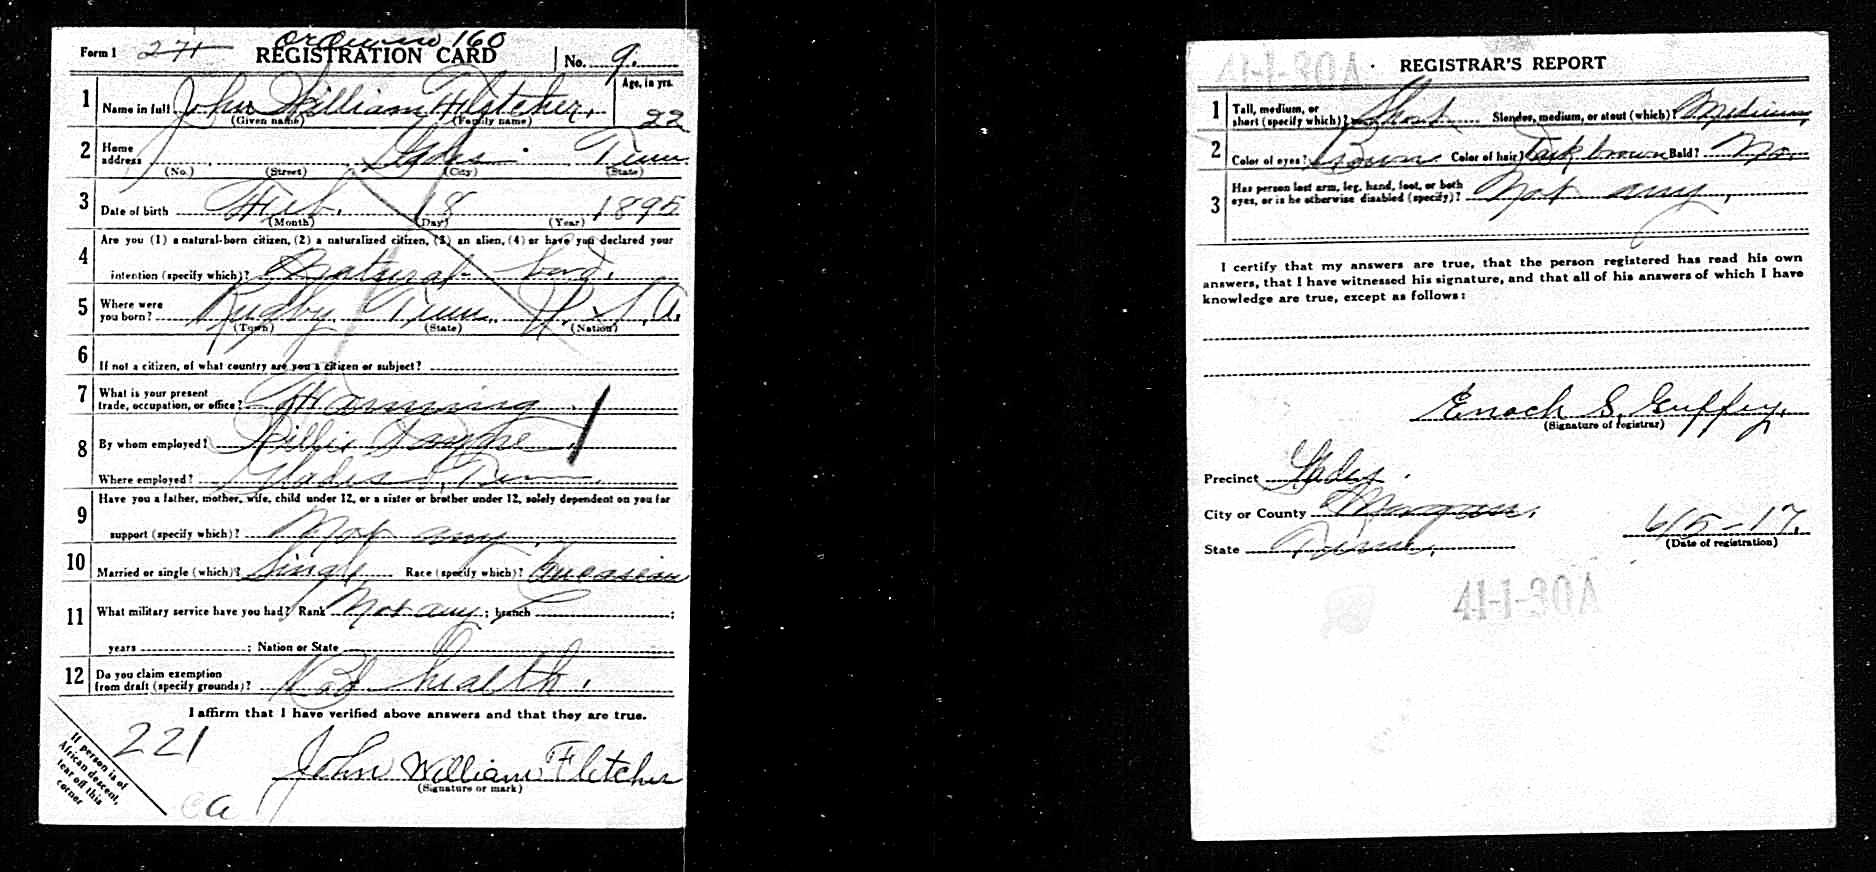 Form 1 271 order no 160
REGISTRATION CARD No. 9.
1 Name in full John William Fletcher. Age, in yrs.
(Given name) (Family name) 22
2 Home address Glades Tenn
(No.) (Street) (City) (State)
3 Date of birth Feb. 18 1895
(Month) (Day) (Year)
4 Are you (1) a natural-born citizen, (2) a naturalized citizen, (3) an alien, (4) or have you declared your
intention (specify which)? Natural born.
5 Where were you born? Rugby Tenn. U. S. A.
(Town) (State) (Nation)
6 If not a citizen, of what country are you a citizen or subject?
7 What is your present trade, occupation, or office? Farming
8 By whom employed? Willie
Where employed? Glades, Tenn.
9 Have you a father, mother, wife, child under 12, or a sister or brother under 12, solely dependent on you for
support (specify which)? Not any.
10 Married or single (which)? Single Race (specify which)? Caucasian
11 What military service have you had? Rank Not any ; branch ;
years ; Nation or State
12 Do you claim exemption from draft (specify grounds)? Bad health.
I affirm that I have verified above answers and that they are true.
221
John William Fletcher
(Signature or mark)
If person is of
African descent,
tear off this
corner
Ca
41-1-30A
REGISTRAR'S REPORT
1 Tall, medium, or short (specify which)? Short Slender, medium, or stout (which)? Medium,
2 Color of eyes? Brown Color of hair? Dark brown Bald? No.
3 Has person lost arm, leg, hand, foot, or both
eyes, or is he otherwise disabled (specify)? Not any,
I certify that my answers are true, that the person registered has read his own
answers, that I have witnessed his signature, and that all of his answers of which I have
knowledge are true, except as follows:
Enoch S. Guffey,
(Signature of registrar)
Precinct Glades.
City or County Morgan.
State Tenn. 6/5-17.
(Date of registration)
41-1-30A